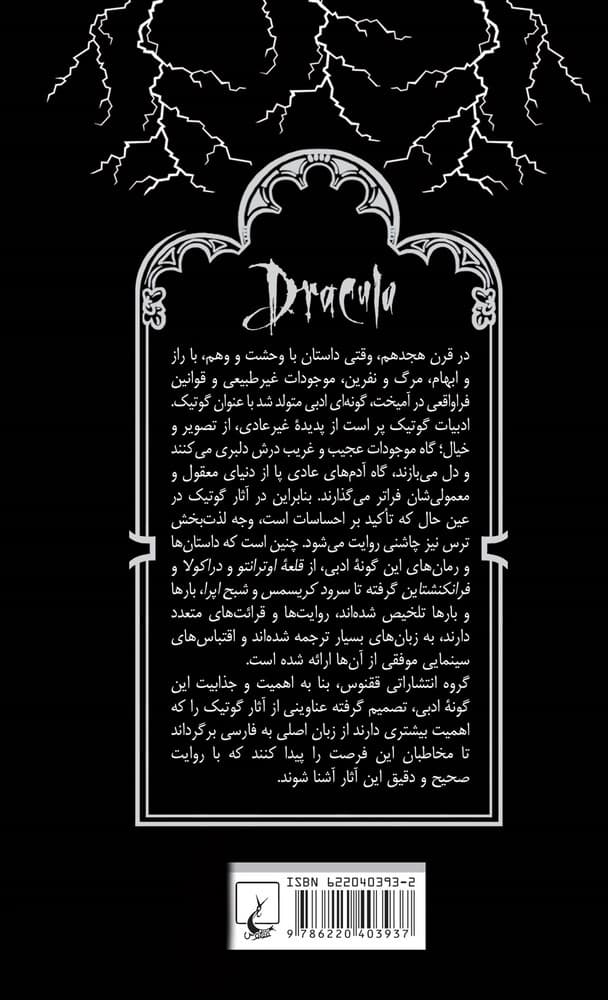 Dracula
در قرن هجدهم، وقتی داستان با وحشت و وهم، با راز
و ابهام، مرگ و نفرین، موجودات غیرطبیعی و قوانین
فراواقعی در آمیخت، گونه‌ای ادبی متولد شد با عنوان گوتیک.
ادبیات گوتیک پر است از پدیدهٔ غیرعادی، از تصویر و
خیال؛ گاه موجودات عجیب و غریب درش دلبری می‌کنند
و دل می‌بازند، گاه آدم‌های عادی پا از دنیای معقول و
معمولی‌شان فراتر می‌گذارند. بنابراین در آثار گوتیک در
عین حال که تأکید بر احساسات است، وجه لذت‌بخش
ترس نیز چاشنی روایت می‌شود. چنین است که داستان‌ها
و رمان‌های این گونهٔ ادبی، از قلعهٔ اوترانتو و دراکولا و
فرانکنشتاین گرفته تا سرود کریسمس و شبح اپرا، بارها
و بارها تلخیص شده‌اند، روایت‌ها و قرائت‌های متعدد
دارند، به زبان‌های بسیار ترجمه شده‌اند و اقتباس‌های
سینمایی موفقی از آن‌ها ارائه شده است.
گروه انتشاراتی ققنوس، بنا به اهمیت و جذابیت این
گونهٔ ادبی، تصمیم گرفته عناوینی از آثار گوتیک را که
اهمیت بیشتری دارند از زبان اصلی به فارسی برگرداند
تا مخاطبان این فرصت را پیدا کنند که با روایت
صحیح و دقیق این آثار آشنا شوند.
ISBN 622040393-2
9 786220 403937